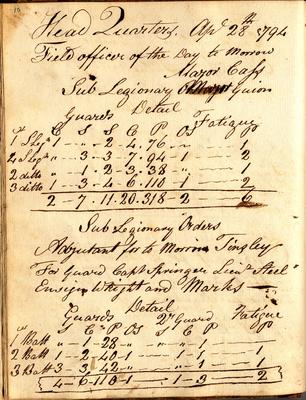 Head Quarters, Apl 28th 1794
Field officer of the Day to Morrow
Major Cass
Sub Legionary Major Guion
Guards Detail Fatigue
C S S C P
1st S Leg 1 " - 2 - 4 . 76 - " - 1
2 S Leg " - 3 - 3 - 7 . 94 - 1 - 2
2 ditto " 1 - 2 - 3 . 38 - " - 1
3 ditto 1 - 3 - 4 - 6 . 110 - 1 - 2
2 - 7 . 11 . 20 . 318 - 2 - 6
Sub Legionary Orders
Adjutant for to Morrow Tingley
For Guard Capt Springer Lieut Steel
Ensign Wright and Marks
Detail
Guards 2d Guard Fatigue
S C P S C P
1st Batt " 1 - 28 - " " " 1 - " - 1
2 Batt 1 - 2 - 40 - 1 - " - 1 - - 1
3 Batt 3 - 3 - 42 - " - " - 1 - - "
4 - 6 . 110 . 1 - 1 - 3 - 2